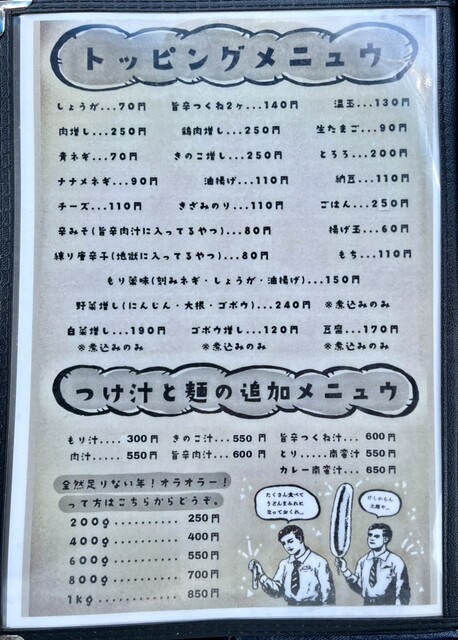 トッピングメニュウ
しょうが...70円 旨辛つくね2ヶ...140円 温玉...130円
肉増し...250円 鶏肉増し...250円 生たまご...90円
青ネギ...70円 きのこ増し...250円 とろろ...200円
ナナメネギ...90円 油揚げ...110円 納豆...110円
チーズ...110円 きざみのり...110円 ごはん...250円
辛みそ(旨辛肉汁に入ってるやつ)...80円 揚げ玉...60円
練り唐辛子(地獄に入ってるやつ)...80円 もち...110円
もり薬味(刻みネギ・しょうが・油揚げ)...150円
野菜増し(にんじん・大根・ゴボウ)...240円 ※煮込みのみ
白菜増し...190円 ゴボウ増し...120円 豆腐...170円
※煮込みのみ ※煮込みのみ ※煮込みのみ
つけ汁と麺の追加メニュウ
もり汁.... 300円 きのこ汁...550円 旨辛つくね汁... 600円
肉汁...... 550円 旨辛肉汁...600円 とり.....南蛮汁 550円
カレー南蛮汁... 650円
全然足りない年!オラオラー!
って方はこちらからどうぞ。
200g.......... 250円
400g.......... 400円
600g.......... 550円
800g.......... 700円
1kg.......... 850円
たくさん食べて
うどんまみれに
なっておくれ…
けしからん
太麺や…